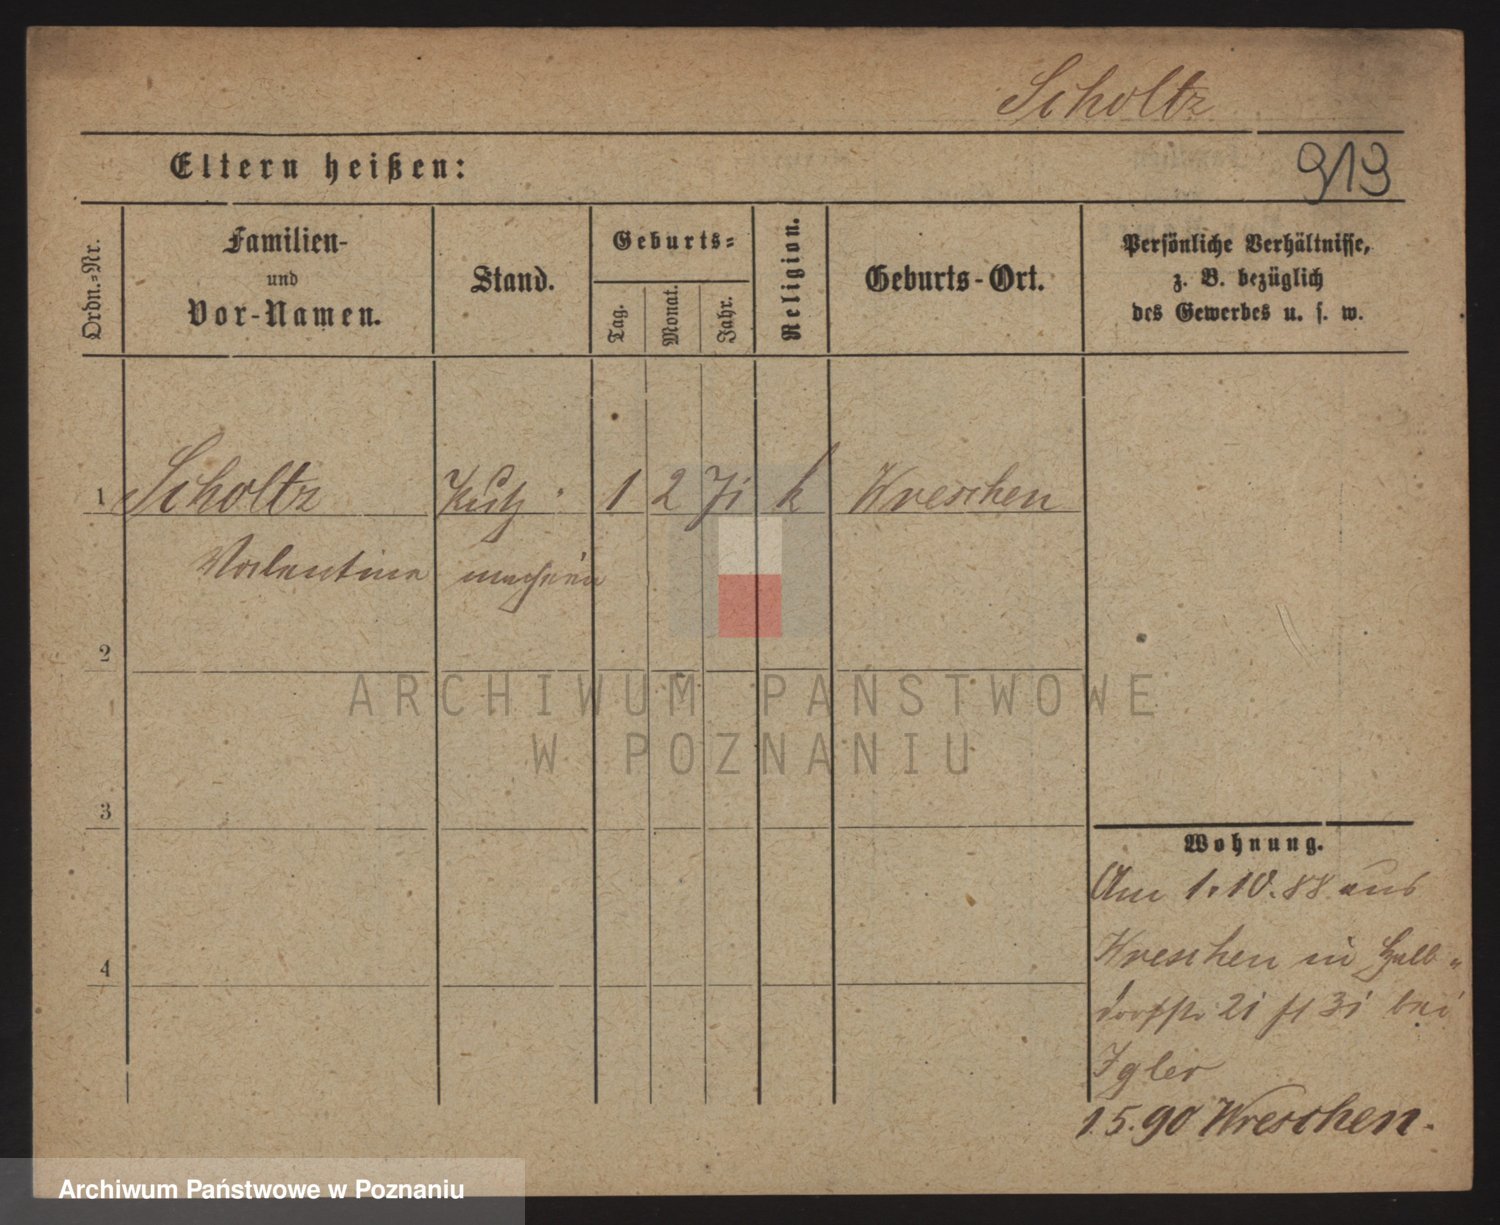 Scholtz
Eltern heißen:
913
Ordn.-Nr.
Familien-
und
Vor-Namen.
Stand.
Geburts-
Tag.
Monat.
Jahr.
Religion.
Geburts-Ort.
Persönliche Verhältnisse,
z. B. bezüglich
des Gewerbes u. s. w.
1 Scholtz Putz- 1 2 71 k Wreschen
Valentine macherin
2
ARCHIWUM PAŃSTWOWE
W POZNANIU
3
Wohnung.
Am 1.10.88 aus
Wreschen in Halb-
dorfstr 21 bei
1.5.90 Wreschen.
4
Archiwum Państwowe w Poznaniu